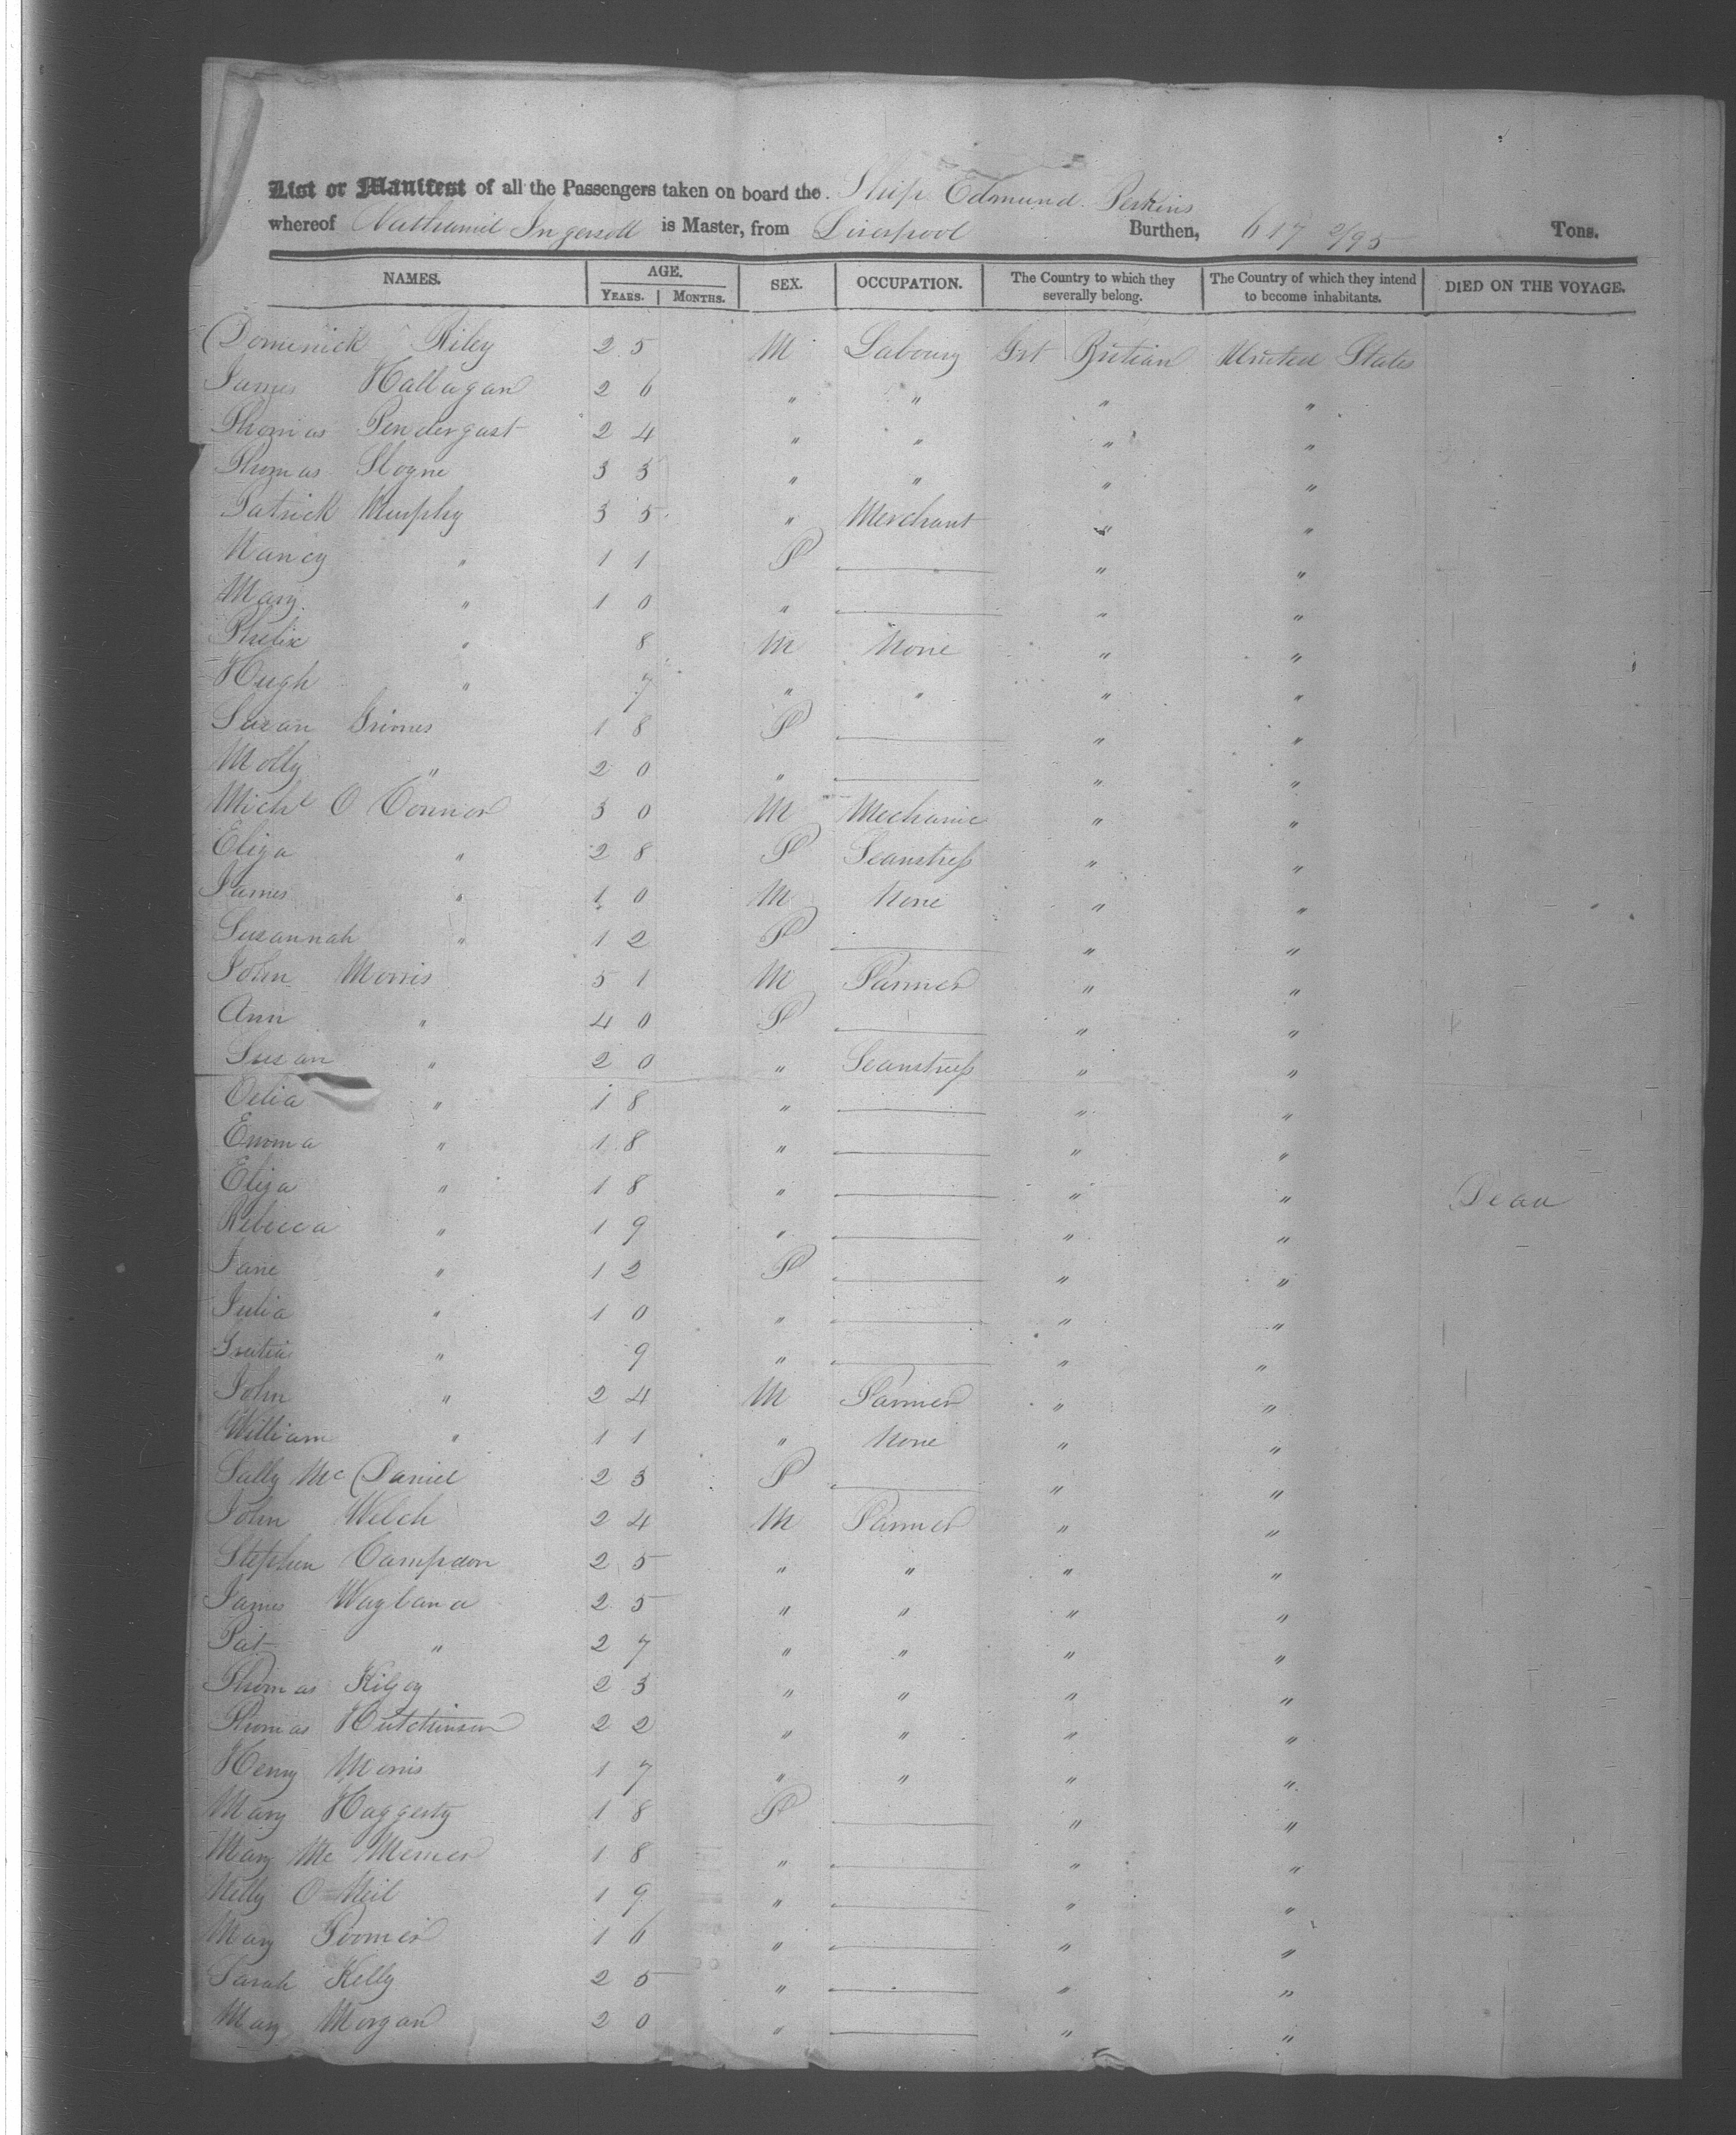 List or Manifest of all the Passengers taken on board the Ship Edmund Perkins
whereof Nathaniel Ingersoll is Master, from Liverpool Burthen, 617 2/95 Tons.
NAMES. AGE. YEARS. MONTHS. SEX. OCCUPATION. The Country to which they severally belong. The Country of which they intend to become inhabitants. DIED ON THE VOYAGE.
Domenick Riley 25 M Labourg Grt Britian United States
James Hallagan 26 " " " "
Thomas Pendergast 24 " " " "
Thomas Sloyne 33 " " " "
Patrick Murphy 35 " Merchant " "
Nancy " 11 F " "
Mary " 10 " " "
Phelix " 8 M None " "
Hugh " 7 " " " "
Susan Grimes 18 F " "
Molly " 20 " " "
Michl O Connor 30 M Mechanic " "
Eliza " 28 F Seanstress " "
James " 10 M None " "
Susannah " 12 F " "
John Morris 51 M Farmer " "
Ann " 40 F " "
Susan " 20 " Seanstress " "
Celia " 18 " " "
Emma " 18 " " "
Eliza " 18 " " " Dead
Rebecca " 19 " " "
Jane " 12 F " "
Julia " 10 " " "
" 9 " " "
John " 24 M Farmer " "
William " 11 " None " "
Sally McDaniel 23 F " "
John Welch 24 M Farmer " "
Stephen Campdon 25 " " " "
James 25 " " " "
Pat " 27 " " " "
Thomas Kilgoy 23 " " " "
Thomas Hutchinson 22 " " " "
Henry Morris 17 " " " "
Mary Haggerty 18 F " "
Mary Mc 18 " " "
Nelly O Neil 19 " " "
Mary 16 " " "
Sarah Kelly 25 " " "
Mary Morgan 20 " " "